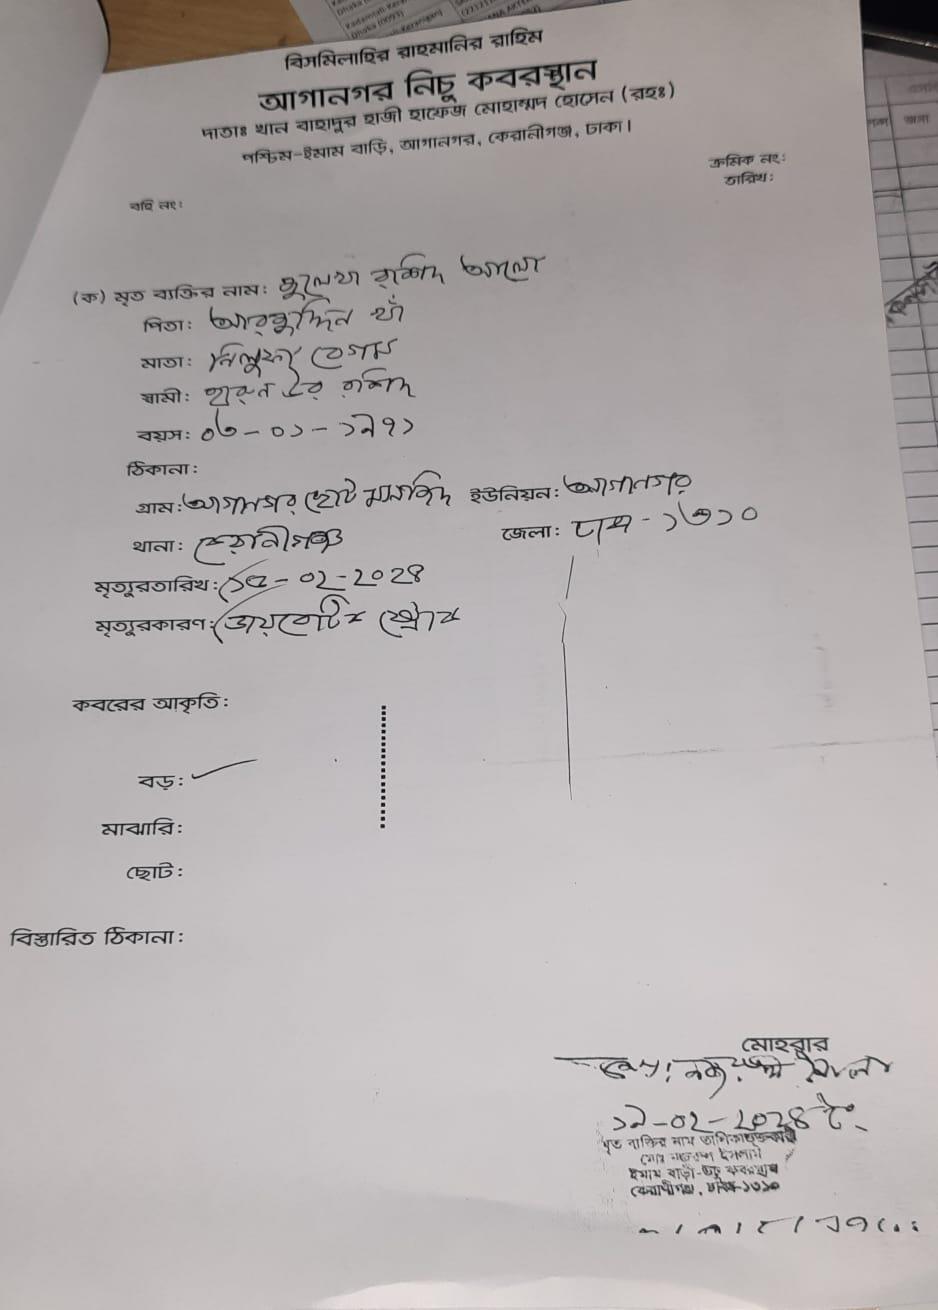 বিসমিলাহির রাহমানির রাহিম
আগানগর নিচু কবরস্থান
দাতাঃ খান বাহাদুর হাজী হাফেজ মোহাম্মদ হোসেন (রহঃ)
পশ্চিম-ইমাম বাড়ি, আগানগর, কেরানীগঞ্জ, ঢাকা।
ক্রমিক নং:
তারিখ:
বহি নং:
(ক) মৃত ব্যক্তির নাম: জুলেখা রশিদ আলো
পিতা: আরজুদ্দিন খাঁ
মাতা: নিলুফা বেগম
স্বামী: হারুন উর রশিদ
বয়স: ০৬-০১-১৯৭১
ঠিকানা:
গ্রাম: আগানগর ছোট মসজিদ ইউনিয়ন: আগানগর
থানা: কেরানীগঞ্জ জেলা: ঢাকা - ১৩১০
মৃত্যুরতারিখ: ১৫-০২-২০২৪
মৃত্যুরকারণ: ডায়বেটিক স্ট্রোক
কবরের আকৃতি:
বড়: ✓
মাঝারি:
ছোট:
বিস্তারিত ঠিকানা:
মোহরার
১৯-০২-২০২৪ ইং
মৃত ব্যক্তির নাম তালিকাভুক্তকারী
ইমাম বাড়ী-নিচু কবরস্থান
কেরানীগঞ্জ, ঢাকা-১৩১০